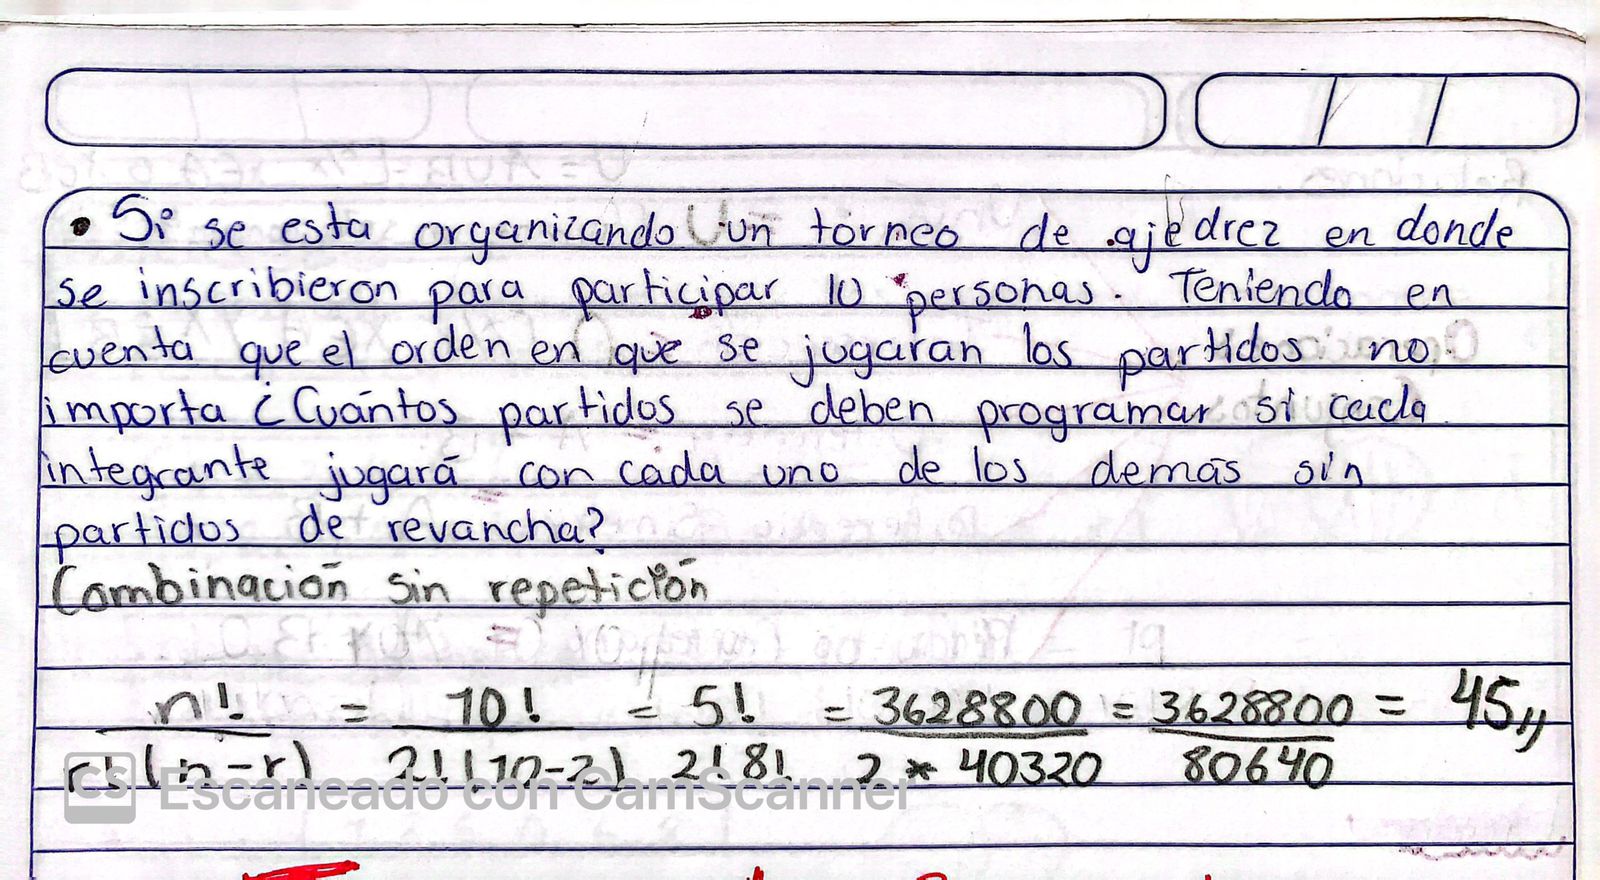 • Si se esta organizando un torneo de ajedrez en donde
se inscribieron para participar 10 personas. Teniendo en
cuenta que el orden en que se jugaran los partidos no
importa ¿Cuántos partidos se deben programar si cada
integrante jugará con cada uno de los demás sin
partidos de revancha?
Combinación sin repetición
n! = 10! = 5! = 3628800 = 3628800 = 45,,
r!(n-r) 2!(10-2) 2!8! 2 * 40320 80640
CS Escaneado con CamScanner